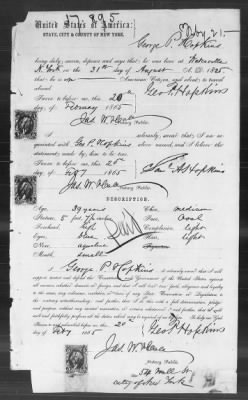 17.895
Feby 21.
United States of America:
STATE, CITY & COUNTY OF NEW YORK.
George P Hopkins
being duly sworn, deposes and says that he was born at Waterville
N. York on the 31st day of August A.D. 1825
Citizen, and about to travel
abroad.
Sworn to before me this 20th
day of February 1865
Geo P. Hopkins
Jas. W. Hale
Notary Public.
I solemnly swear that I am acquainted
with Geo P. Hopkins named, and believe the
statement made by him to be true.
Sworn to before me this 20
day of Feby 1865
Saml A Hopkins
Jas. W. Hale
DESCRIPTION.
Age 39 years
Stature 5 feet
Forehead high
Eyes blue
Nose aquiline
Mouth small
Chin medium
Face Oval
Complexion light
Hair light
Paid
I George P Hopkins do solemnly swear that I will
support, protect and defend the Constitution and Government of the United States against
all enemies, whether domestic or foreign, and that I will bear true faith, allegiance and loyalty
to the same, any ordinance, resolution or law of any State Convention or Legislature to
the contrary notwithstanding; and further, that I do this with a full determination, pledge and
purpose, without any mental reservation or evasion whatsoever; and further, that I will
well and faithfully perform all the duties which may be required of me by law. So help me God.
20
day of Feby 1865
Geo P. Hopkins
Jas. W. Hale
Notary Public.
54 Wall St
city of New York